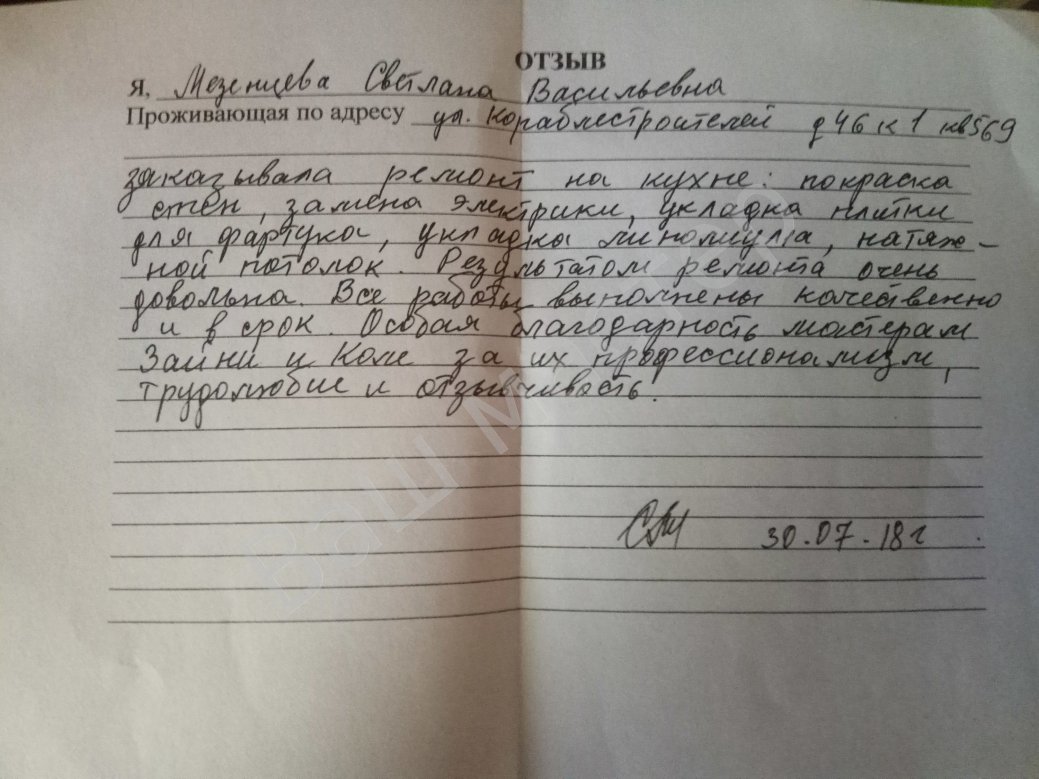 ОТЗЫВ
Я, Мезенцева Светлана Васильевна
Проживающая по адресу ул. Кораблестроителей д 46 к 1 кв 569
заказывала ремонт на кухне: покраска
стен, замена электрики, укладка плитки
для фартука, укладка линолиума, натяж-
ной потолок. Результатом ремонта очень
довольна. Все работы выполнены качественно
и в срок. Особая благодарность мастерам
Зайни и Коле за их профессионализм,
трудолюбие и отзывчивость.
30.07.18г